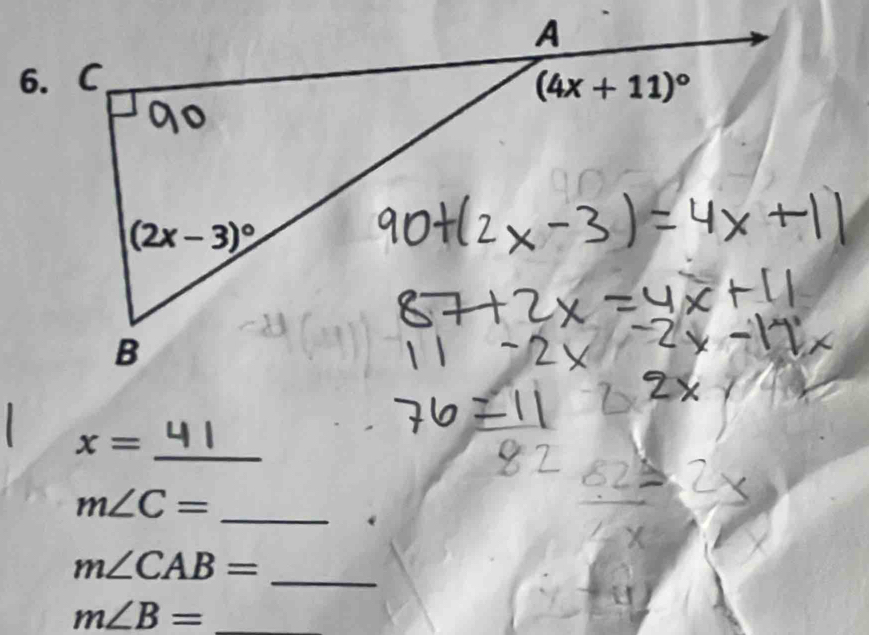 A
6. C
(4x + 11)°
90
(2x – 3)°
B
90+(2x-3)=4x+11
87+2x=4x+11
11 -2x -2x -11
76=11 2x
82
82= 2x
x = 41
m∠C = ____
m∠CAB = ____
m∠B = ____